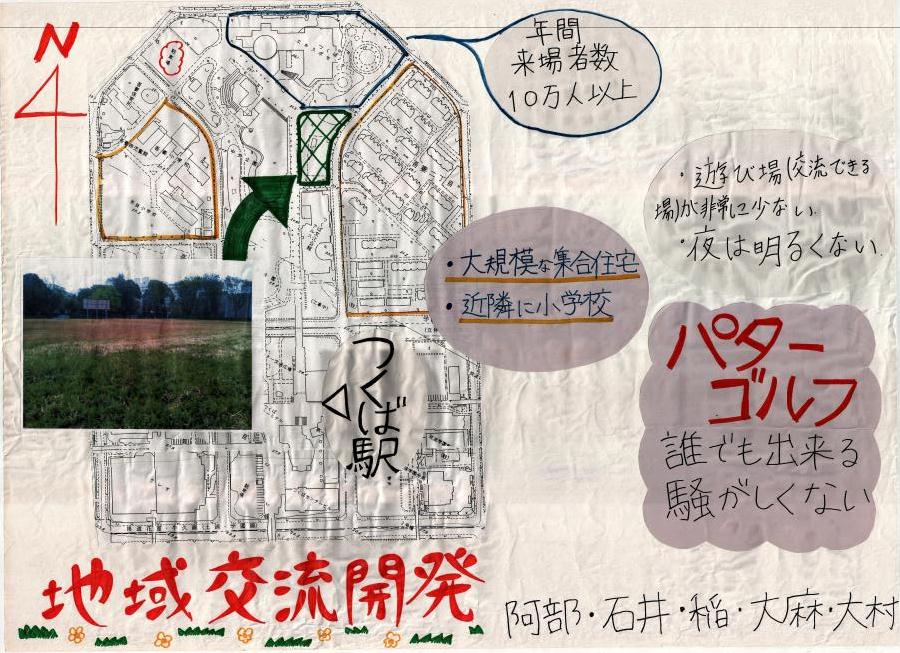 N
年間
来場者数
10万人以上
・遊び場(交流できる
場)が非常に少ない。
・夜は明るくない。
・大規模な集合住宅
・近隣に小学校
パター
ゴルフ
誰でも出来る
騒がしくない
つくば駅
地域交流開発
阿部・石井・稲・大麻・大村